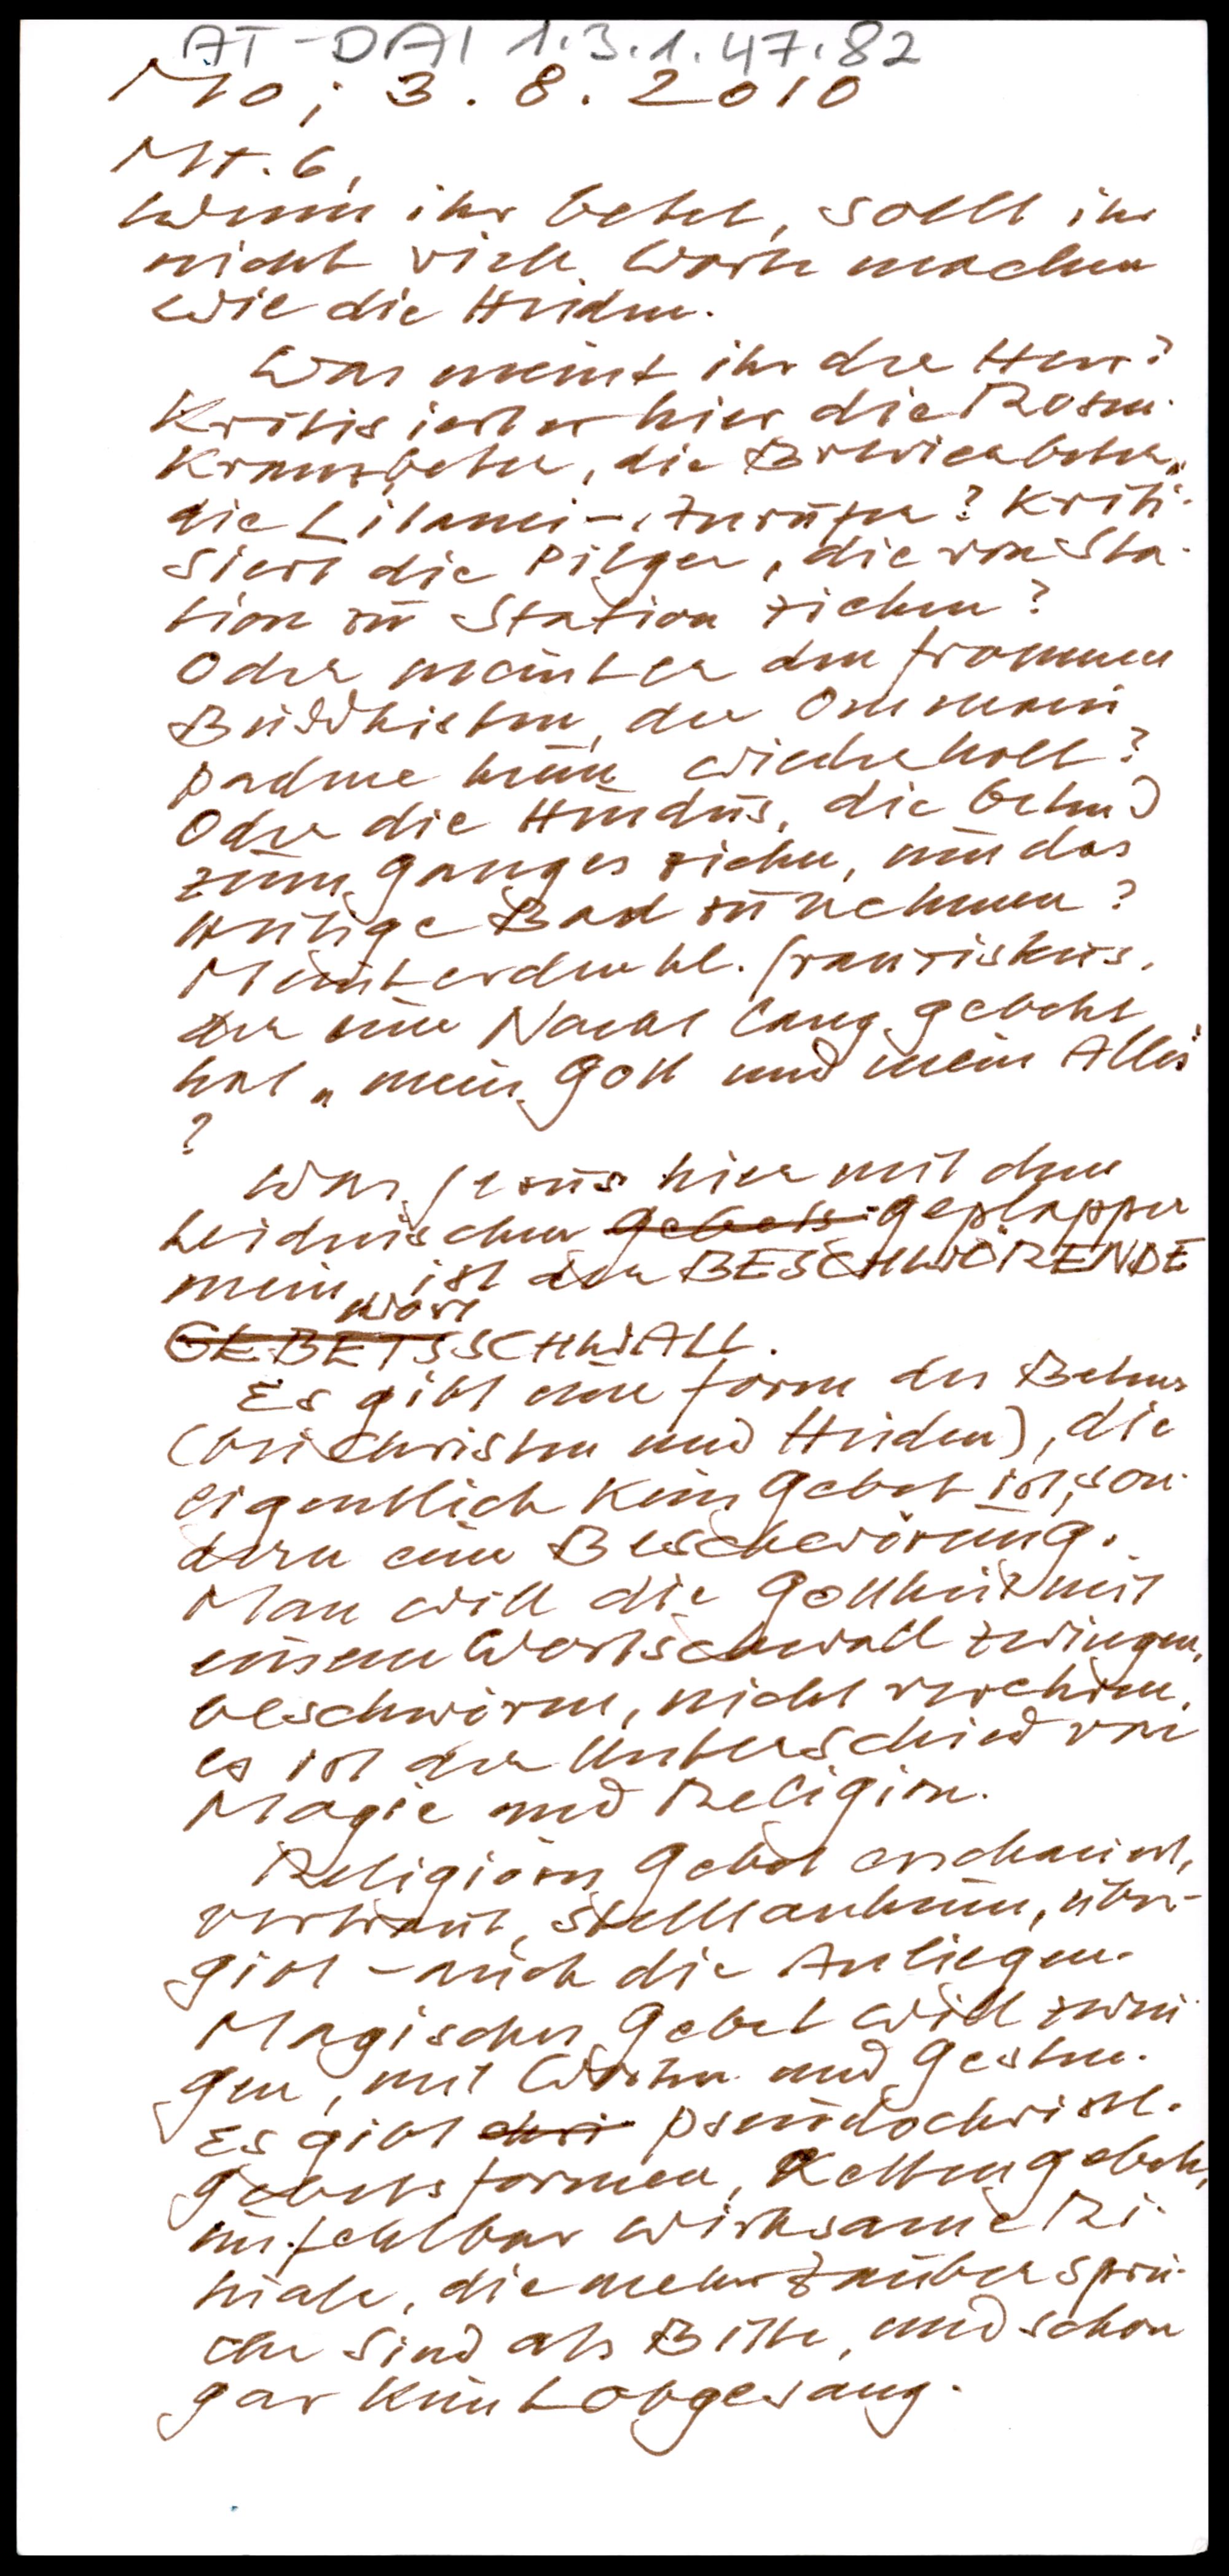 AT-DAI 1.3.1.47.82
Mo; 3.8.2010
Mt. 6,
Wenn ihr betet, sollt ihr
nicht viele Worte machen
wie die Heiden.
Was meint ihr der Herr?
Kritisiert er hier die Rosen-
kranzbeter, die Brevierbeter,
die Litanei-Anrufer? Kriti-
siert die Pilger, die von Sta-
tion zu Station ziehen?
Oder meint er den frommen
Buddhisten, der Om mani
padme hum wiederholt?
Oder die Hindus, die betend
zum Ganges ziehen, um das
heilige Bad zu nehmen?
Meint er den hl. Franziskus,
der eine Nacht lang gebetet
hat „mein Gott und mein Alles"
?
Was Jesus hier mit dem
heidnischen Gebets-Geplapper
meint ist der BESCHWÖRENDE
Wort
GEBETSSCHWALL.
Es gibt eine Form des Betens
(bei Christen und Heiden), die
eigentlich kein Gebet ist, son-
dern eine Beschwörung.
Man will die Gottheit mit
einem Wortschwall zwingen,
beschwören, nicht verehren.
es ist der Unterschied von
Magie und Religion.
Religiöses Gebet erschauert,
vertraut, stellt anheim, über-
gibt - auch die Anliegen.
Magisches Gebet will zwin-
gen, mit Worten und Gesten.
Es gibt chri pseudochristl.
Gebetsformen, Kettengebete,
unfehlbar wirksame Ri-
tuale, die mehr Zaubersprü-
che sind als Bitte, und schon
gar kein Lobgesang.